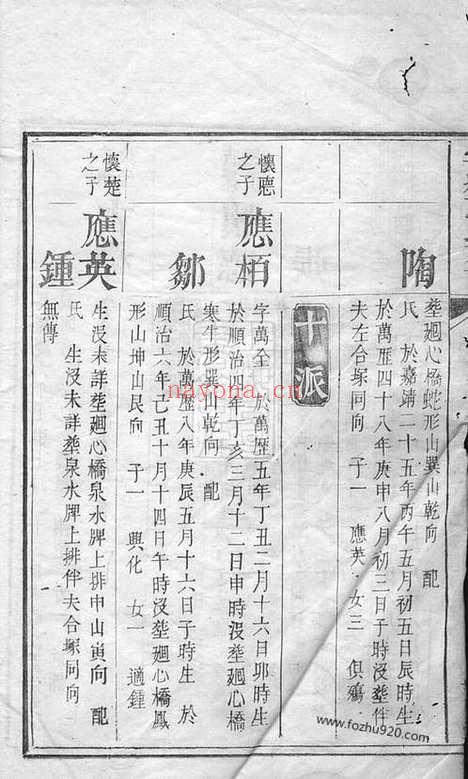 塟廻心橋蛇形山巽山乾向　配
陶
氏　於嘉靖二十五年丙午五月初五日辰時生
於萬歷四十八年庚申八月初三日子時沒塟伴
夫左合塚同向　子一　應英　女三　俱殤
十一派
懷聴之子
應栢
字萬全　於萬歷五年丁丑二月十六日卯時生
於順治四年丁亥三月十二日申時沒塟廻心橋
寒牛形巽山乾向　配
鄒
氏　於萬歷八年庚辰五月十六日子時生　於
順治六年己丑十月十四日午時沒塟廻心橋鳳
形山坤山艮向　子一　興化　女一　適鍾
懷楚之子
應英
生沒未詳塟廻心橋泉水牌上排申山寅向　配
鍾
氏　生沒未詳塟泉水牌上排伴夫合塚同向
無傳
nayona.cn
www.fozhu920.com